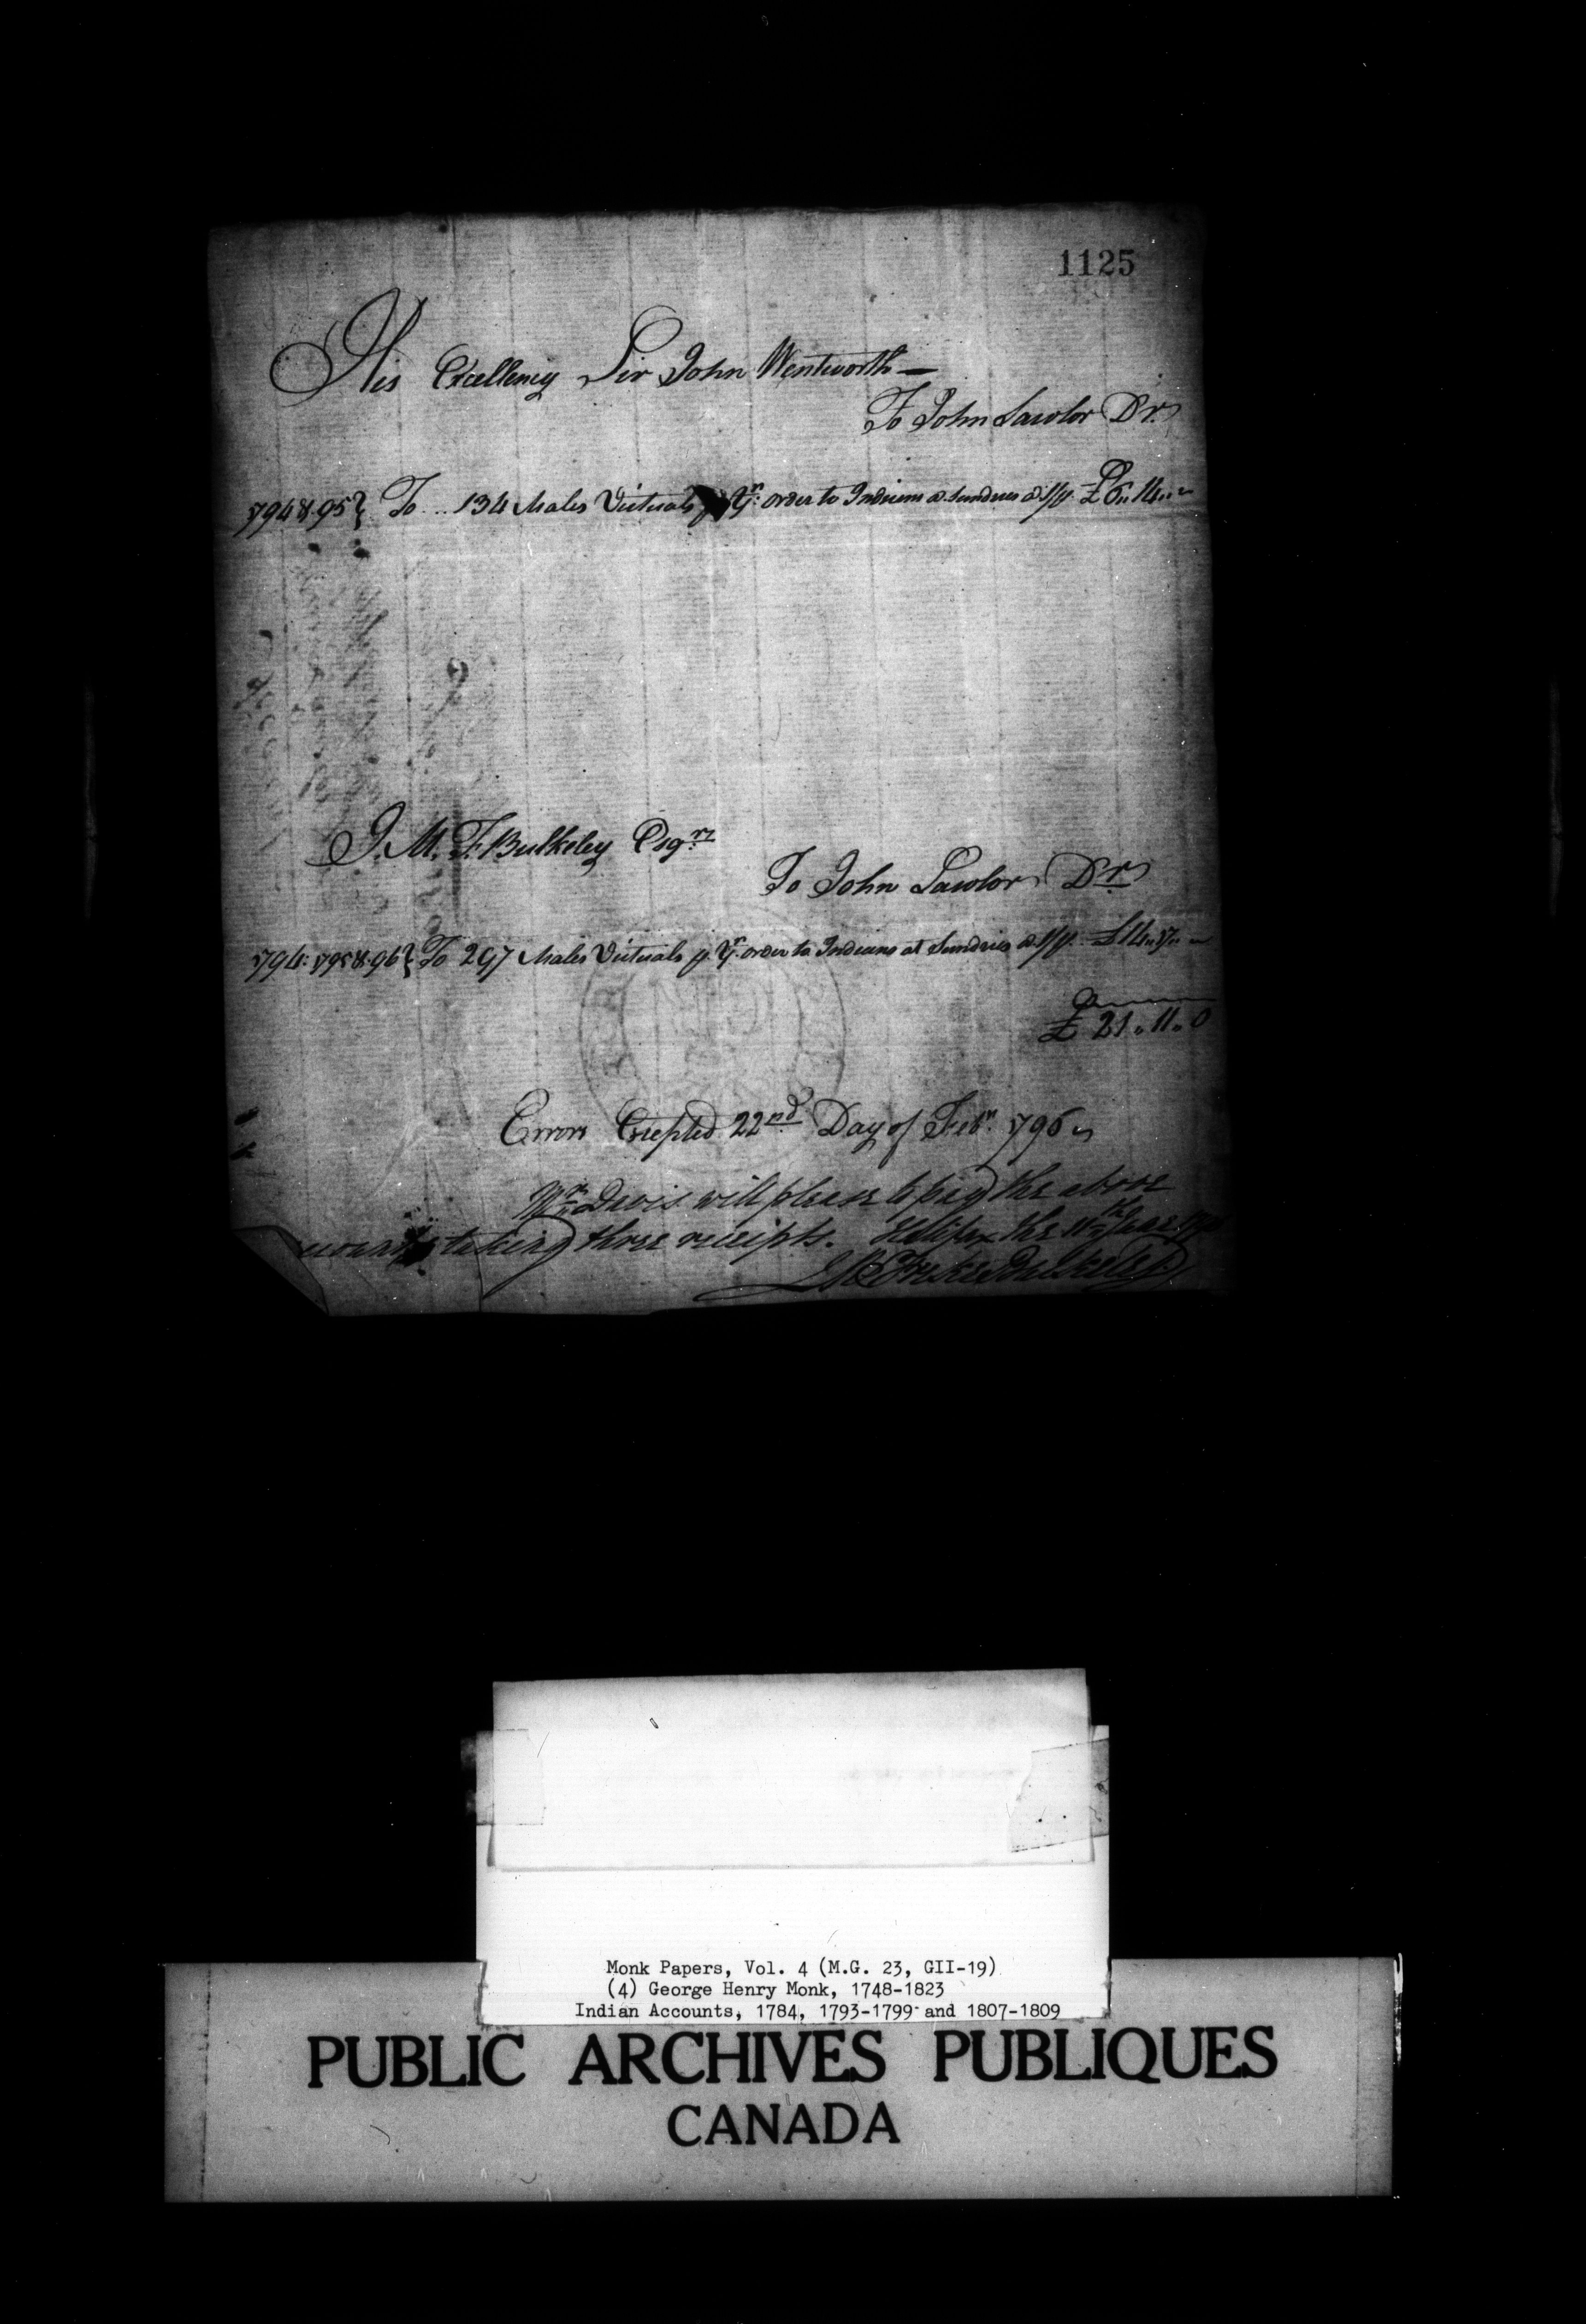 1125
His Excellency Sir John Wentworth —
To John Lawlor Dr.
1794 & 95 } To .. 134 Males Victuals p Yr. order to Indians @ Sundries @ 1/ p. £ 6 " 14 " "
J. M. F. Bulkeley Esqr.
To John Lawlor Dr.
1794: 1795 & 96 } To 297 Males Victuals p. Yr. order to Indians at Sundries @ 1/ p. £ 14 " 17 " "
£ 21 " 11 " 0
Errors Excepted 22nd Day of Febr. 1796
Mr. Davis will please to pay the above
taking three receipts. Halifax the 11th June
J M Freke Bulkeley.
Monk Papers, Vol. 4 (M.G. 23, GII-19)
(4) George Henry Monk, 1748-1823
Indian Accounts, 1784, 1793-1799 and 1807-1809
PUBLIC ARCHIVES PUBLIQUES
CANADA